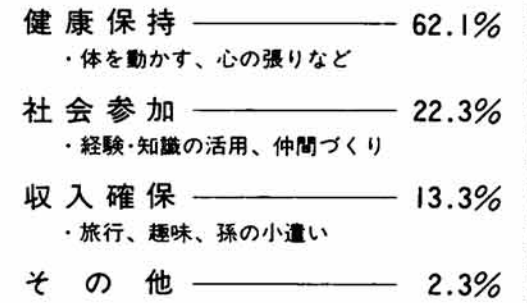 健康保持 ――――― 62.1%
・体を動かす、心の張りなど
社会参加 ――――― 22.3%
・経験・知識の活用、仲間づくり
収入確保 ――――― 13.3%
・旅行、趣味、孫の小遣い
その他 ――――― 2.3%